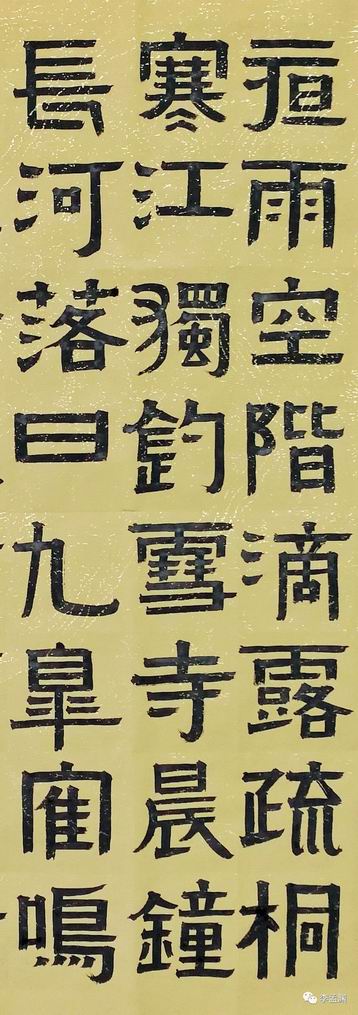 亱雨空階滴露疏桐
寒江獨釣雪寺晨鐘
長河落日九皋隺鳴